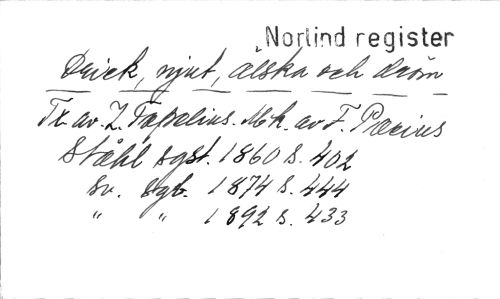 Norlind register
Drick, njut, älska och dröm
Tx. av. Z. Topelius. Mk. av F. Pacius
Ståhl sgst. 1860 s. 402
Sv. sgb. 1874 s. 444
" " 1892 s. 433